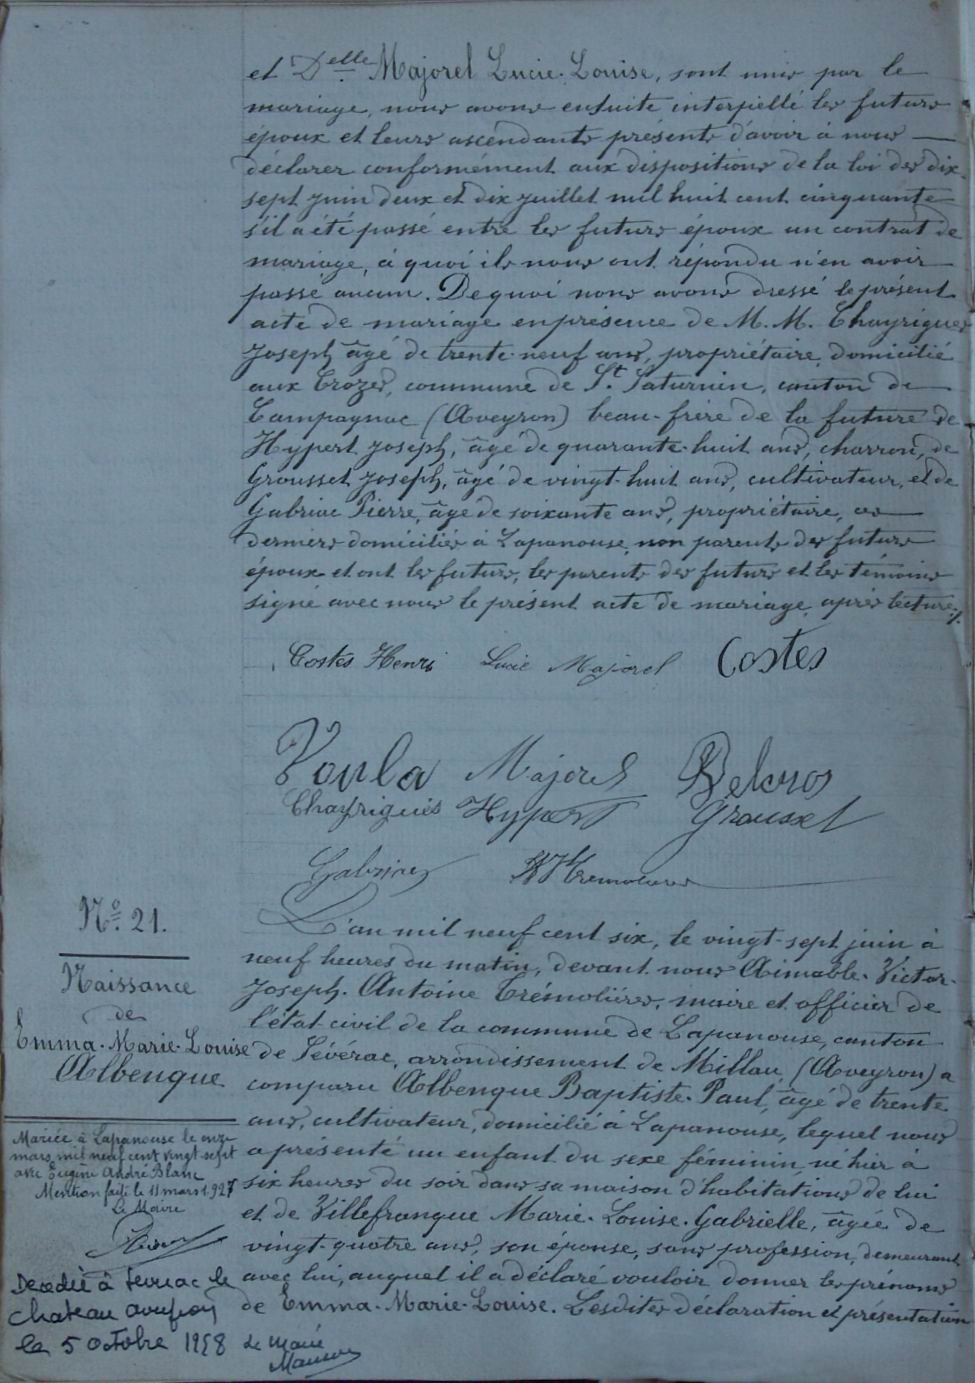 et Delle Majorel Lucie-Louise, sont unis par le
mariage, nous avons ensuite interpellé les futurs
époux et leurs ascendants présents d'avoir à nous
déclarer conformément aux dispositions de la loi des dix
sept juin deux et dix juillet mil huit cent cinquante
s'il a été passé entre les futurs époux un contrat de
mariage, à quoi ils nous ont répondu n'en avoir
passé aucun. De quoi nous avons dressé le présent
acte de mariage en présence de M. M. Chayrigues
Joseph âgé de trente-neuf ans, propriétaire, domicilié
aux Crozes, commune de St. Saturnin, canton de
Campagnac (Aveyron) beau-frère de la future de
Hypert Joseph, âgé de quarante-huit ans, charron, de
Grousset Joseph, âgé de vingt-huit ans, cultivateur, et de
Gabriac Pierre, âgé de soixante ans, propriétaire, ces
derniers domiciliés à Lapanouse, non parents des futurs
époux et ont les futurs, les parents des futurs et les témoins
signé avec nous le présent acte de mariage après lecture./.
Costes Henri Lucie Majorel Costes
Voula Majorel Delcros
Chayrigues Hypert Grousset
Gabriac Tremolieres
No. 21.
Naissance
de
Emma-Marie-Louise
Albenque
L'an mil neuf cent six, le vingt-sept juin à
neuf heures du matin, devant nous Aimable-Victor-
Joseph-Antoine Trémolières, maire et officier de
l'état civil de la commune de Lapanouse, canton
de Sévérac, arrondissement de Millau (Aveyron) a
comparu Albenque Baptiste-Paul, âgé de trente
ans, cultivateur, domicilié à Lapanouse, lequel nous
a présenté un enfant du sexe féminin, né hier à
six heures du soir dans sa maison d'habitations de lui
et de Villefranque Marie-Louise-Gabrielle, âgée de
vingt-quatre ans, son épouse, sans profession, demeurant
avec lui, auquel il a déclaré vouloir donner les prénoms
de Emma-Marie-Louise. Lesdites déclaration et présentation
Mariée à Lapanouse le onze
mars mil neuf cent vingt-sept
avec Eugène André Blanc
Mention faite le 11 mars 1927
Le Maire
Decedée à
chateau
le 5 octobre 1958 Le Maire